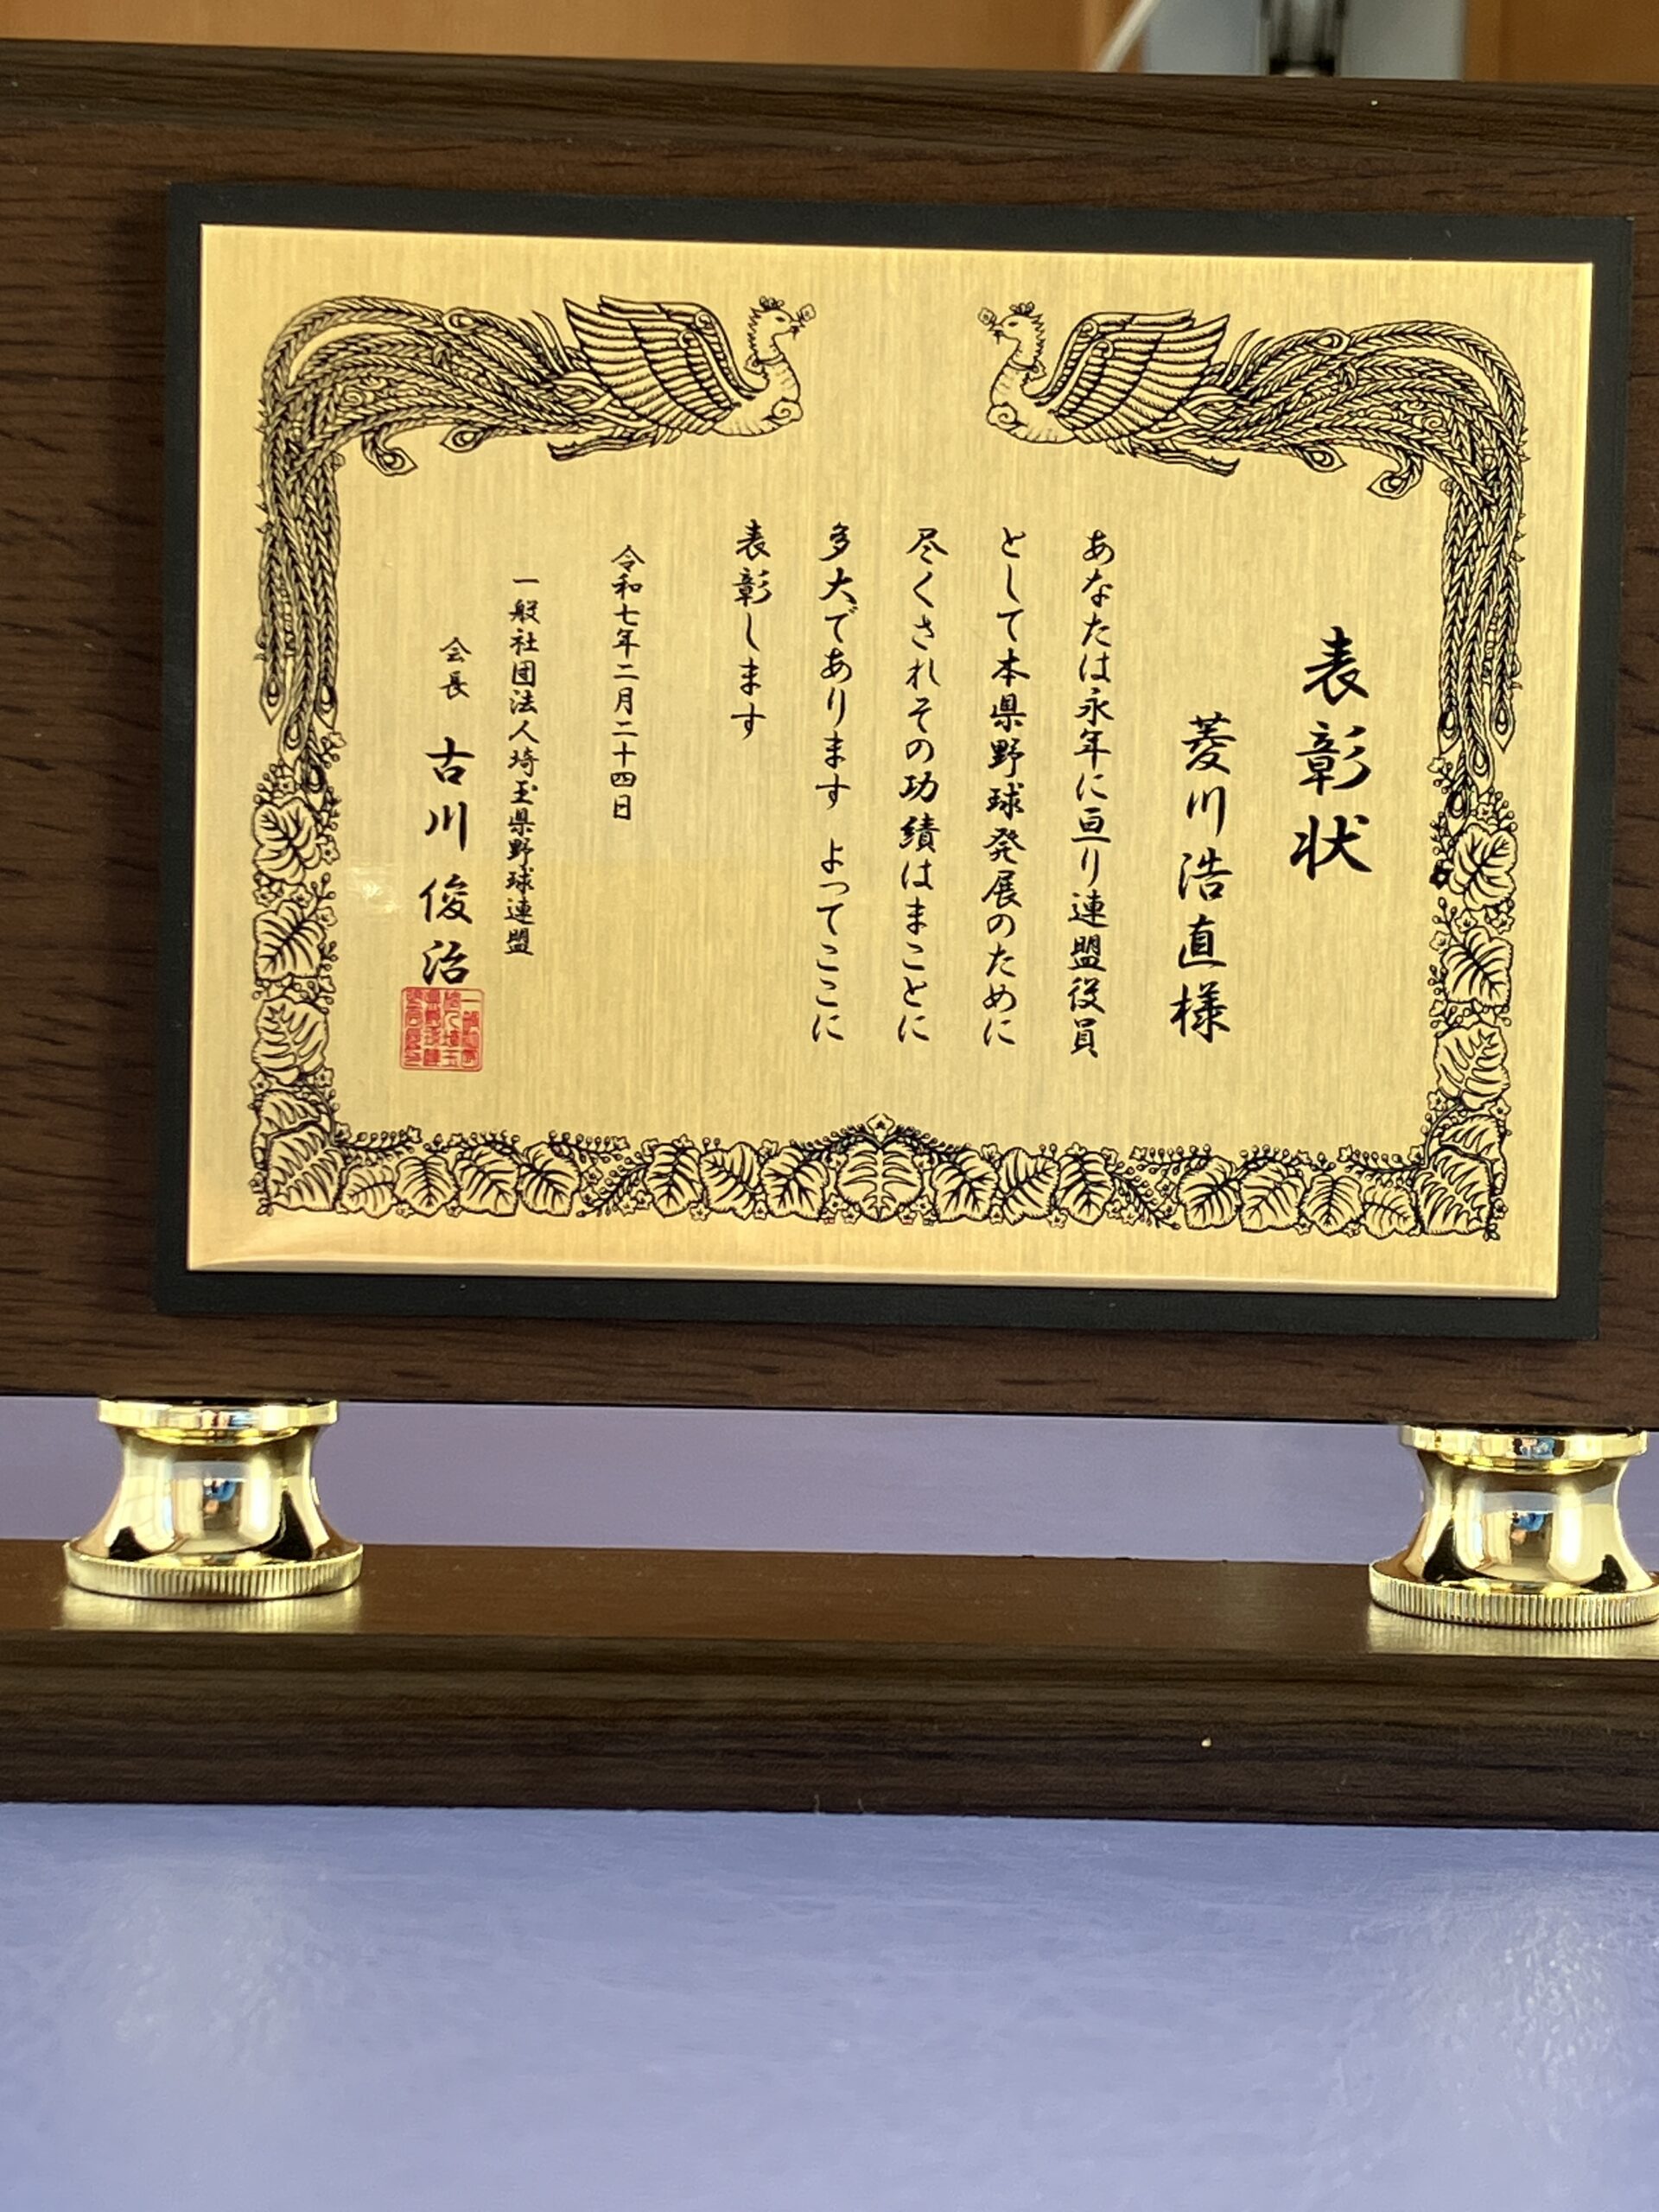 表彰状
菱川浩直様
あなたは永年に亘り連盟役員
として本県野球発展のために
尽くされその功績はまことに
多大であります よってここに
表彰します
令和七年二月二十四日
一般社団法人埼玉県野球連盟
会長 古川俊治